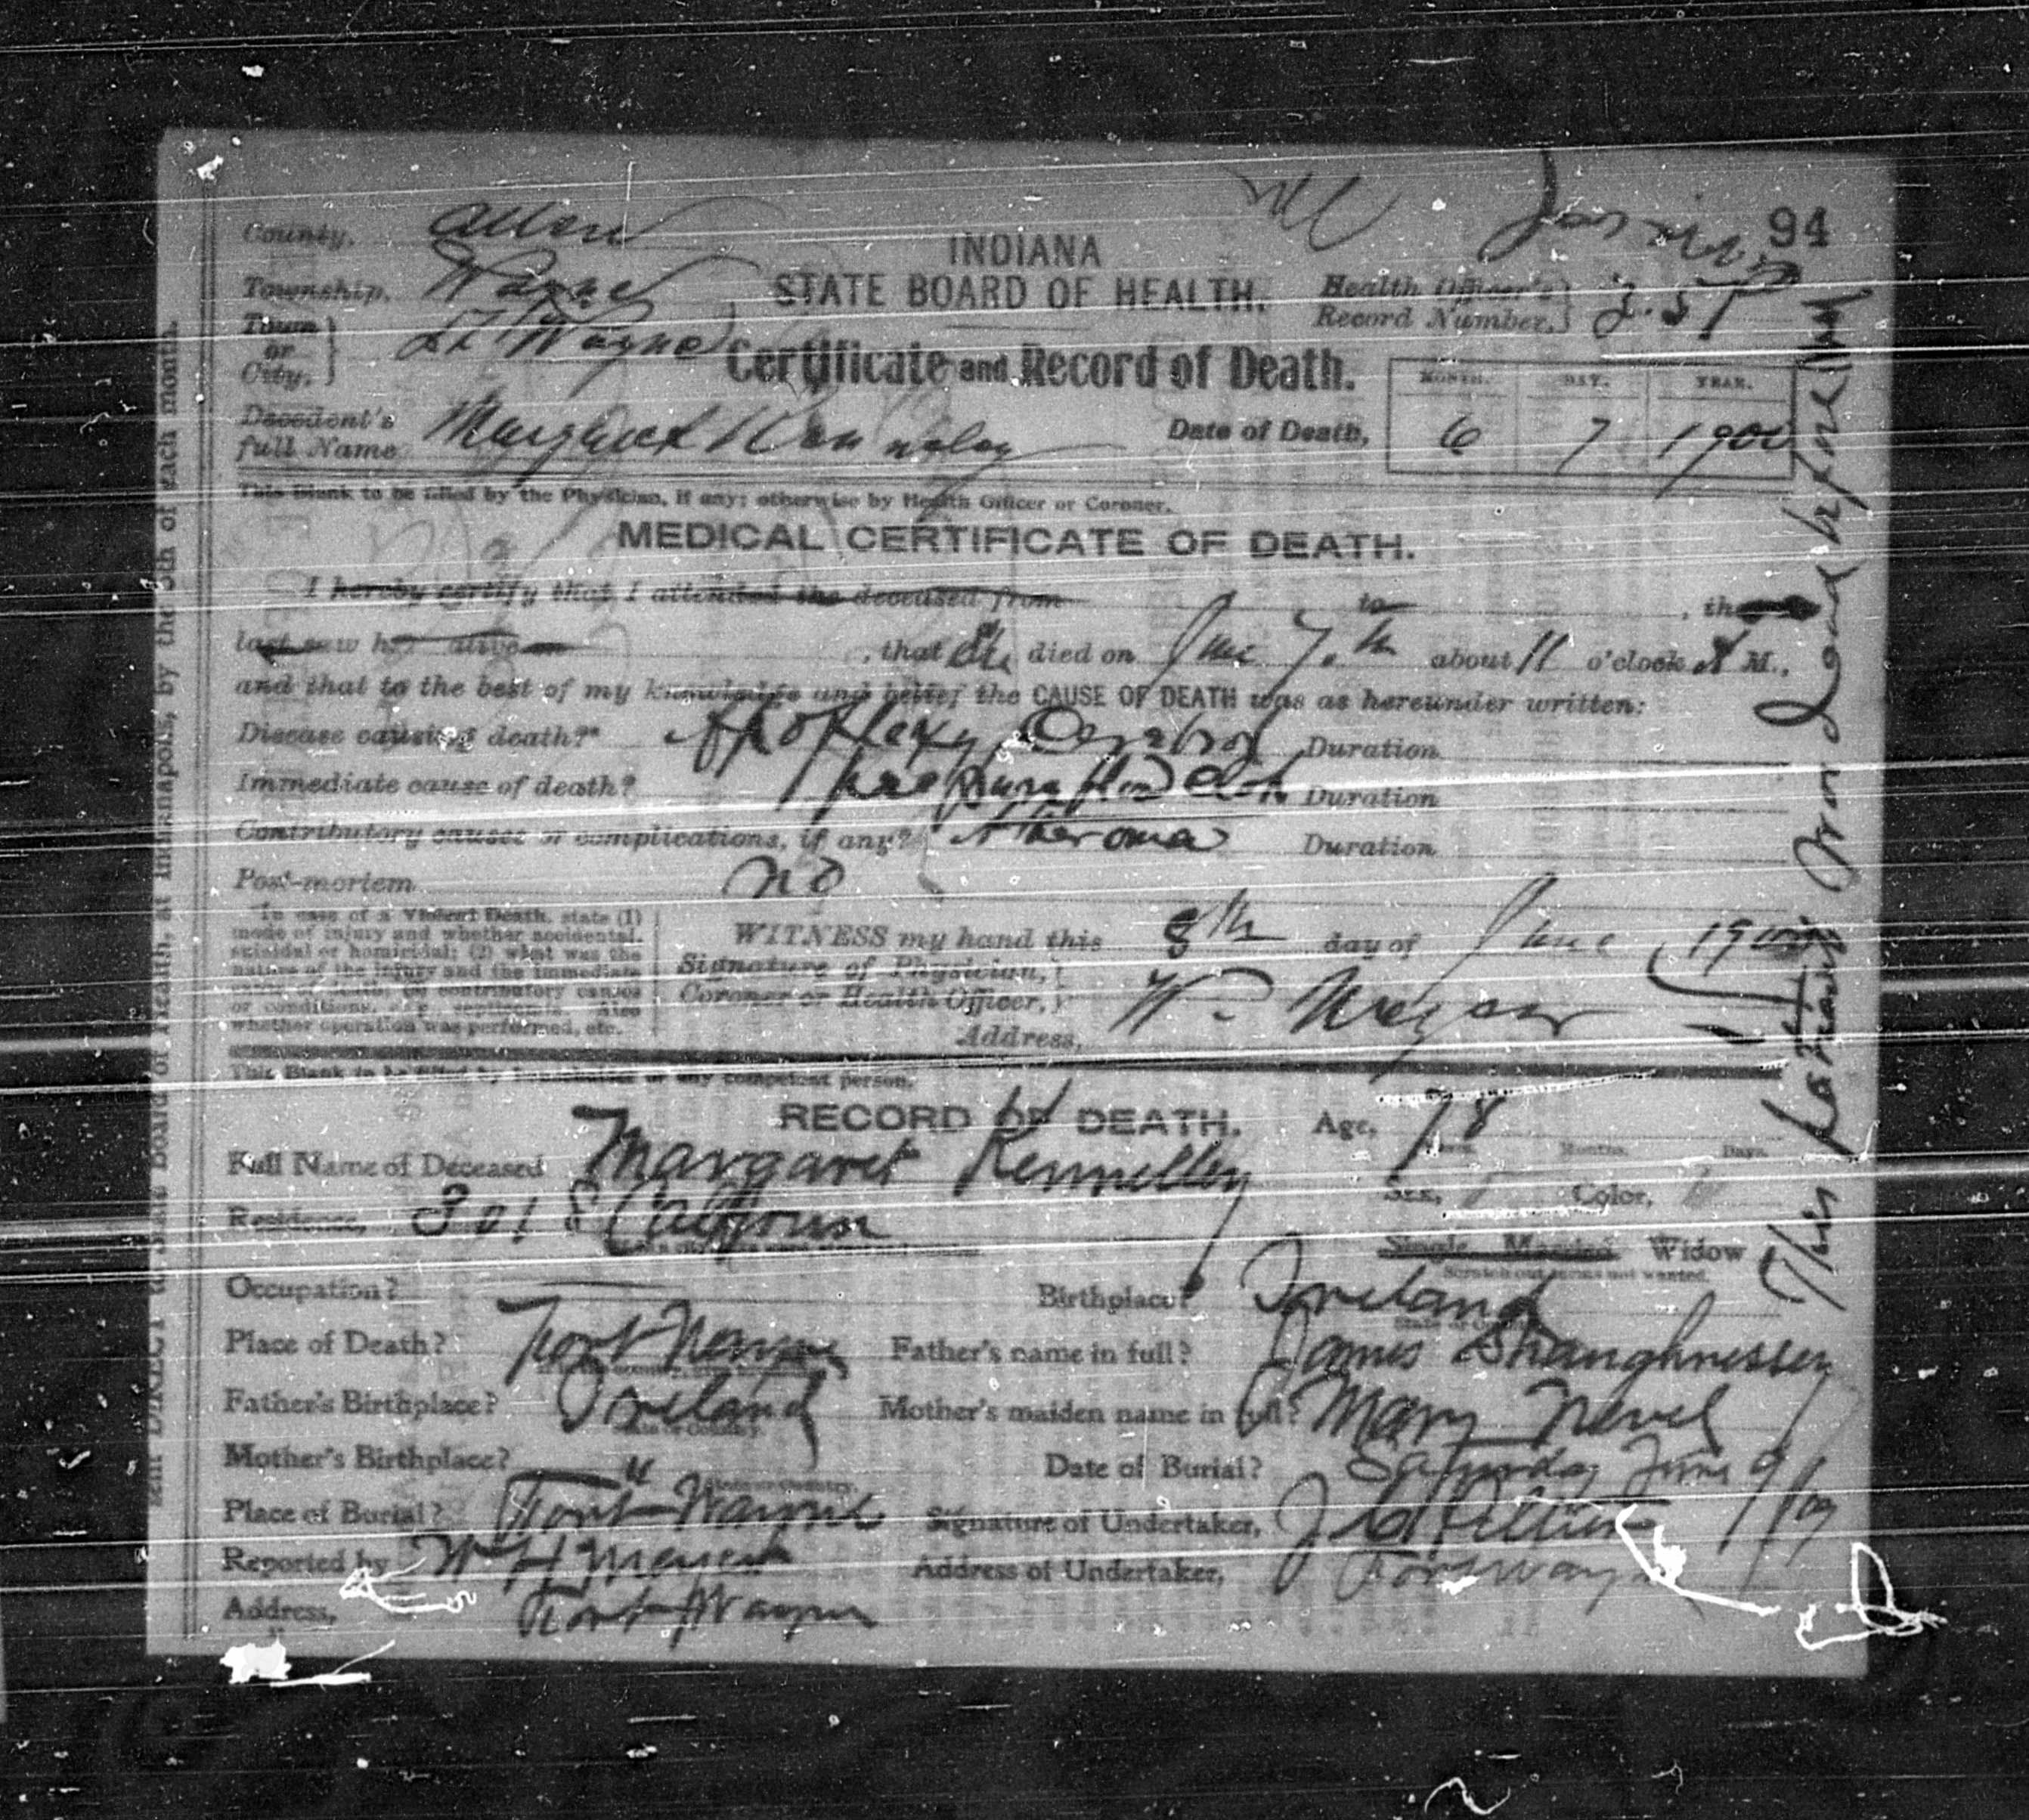 94
County. Allen
INDIANA
Township. Wayne
STATE BOARD OF HEALTH.
Health Officer's Record Number.
Town or City. Ft Wayne
Certificate and Record of Death.
MONTH. DAY. YEAR.
Decedent's full Name Margaret Kenneley
Date of Death, 6 7 1900
This Blank to be filled by the Physician, if any; otherwise by Health Officer or Coroner.
MEDICAL CERTIFICATE OF DEATH.
I hereby certify that I attended the deceased from to , that I
last saw her alive on , that she died on June 7th about 11 o'clock A M.,
and that to the best of my knowledge and belief the CAUSE OF DEATH was as hereunder written:
Disease causing death?* Apoplexy, Cerebral Duration
Immediate cause of death? Duration
Contributory causes or complications, if any? Atheroma Duration
Post-mortem no
*In case of a Violent Death, state (1)
mode of injury and whether accidental,
suicidal or homicidal; (2) what was the
nature of the injury and the immediate
cause of death; (3) contributory causes
or conditions, e. g. septicemia. Also
whether operation was performed, etc.
WITNESS my hand this 8th day of June 1900
Signature of Physician,
Coroner or Health Officer,
Address,
This Blank to be filled by householder or any competent person.
RECORD OF DEATH.
Age, 78
Years. Months. Days.
Full Name of Deceased Margaret Kennelley
Sex, Color,
Residence, 301 S Calhoun
Single Married Widow
Scratch out terms not wanted.
Occupation?
Birthplace? Ireland
State or Country.
Place of Death? Fort Wayne
Father's name in full? James Shaughnessey
Father's Birthplace? Ireland
State or Country.
Mother's maiden name in full? Mary Nevel
Mother's Birthplace? "
State or Country.
Date of Burial? Saturday June 9
Place of Burial? Fort Wayne
Signature of Undertaker,
Reported by
Address of Undertaker, Fort Wayne
Address, Fort Wayne
Mail DIRECT to State Board of Health, at Indianapolis, by the 5th of each month.
This patient was dead before